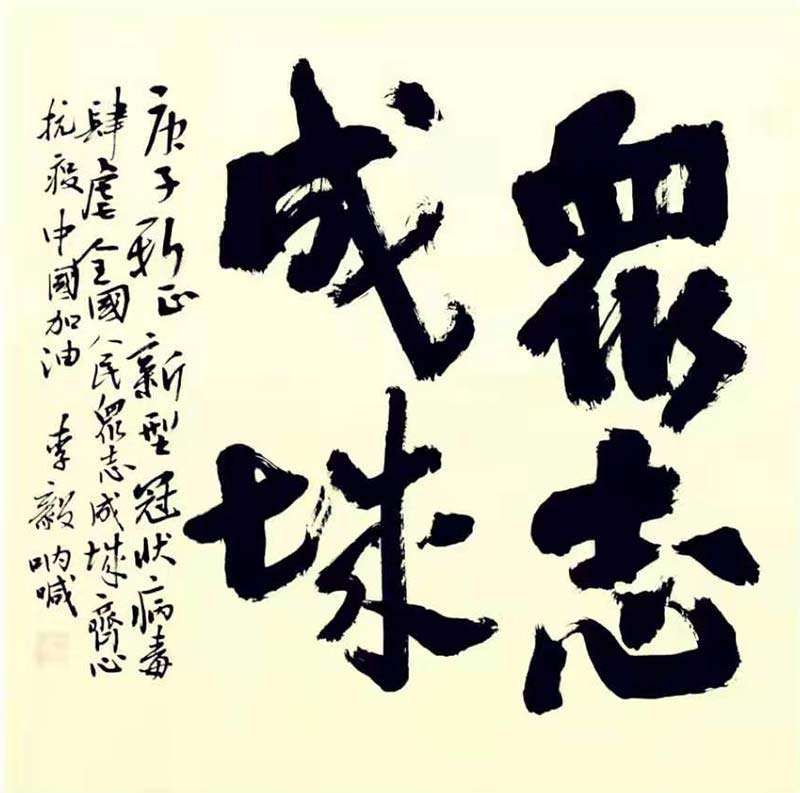 眾志
成城
庚子新正新型冠狀病毒
肆虐全國人民眾志成城齊心
抗疫中國加油
李毅吶喊